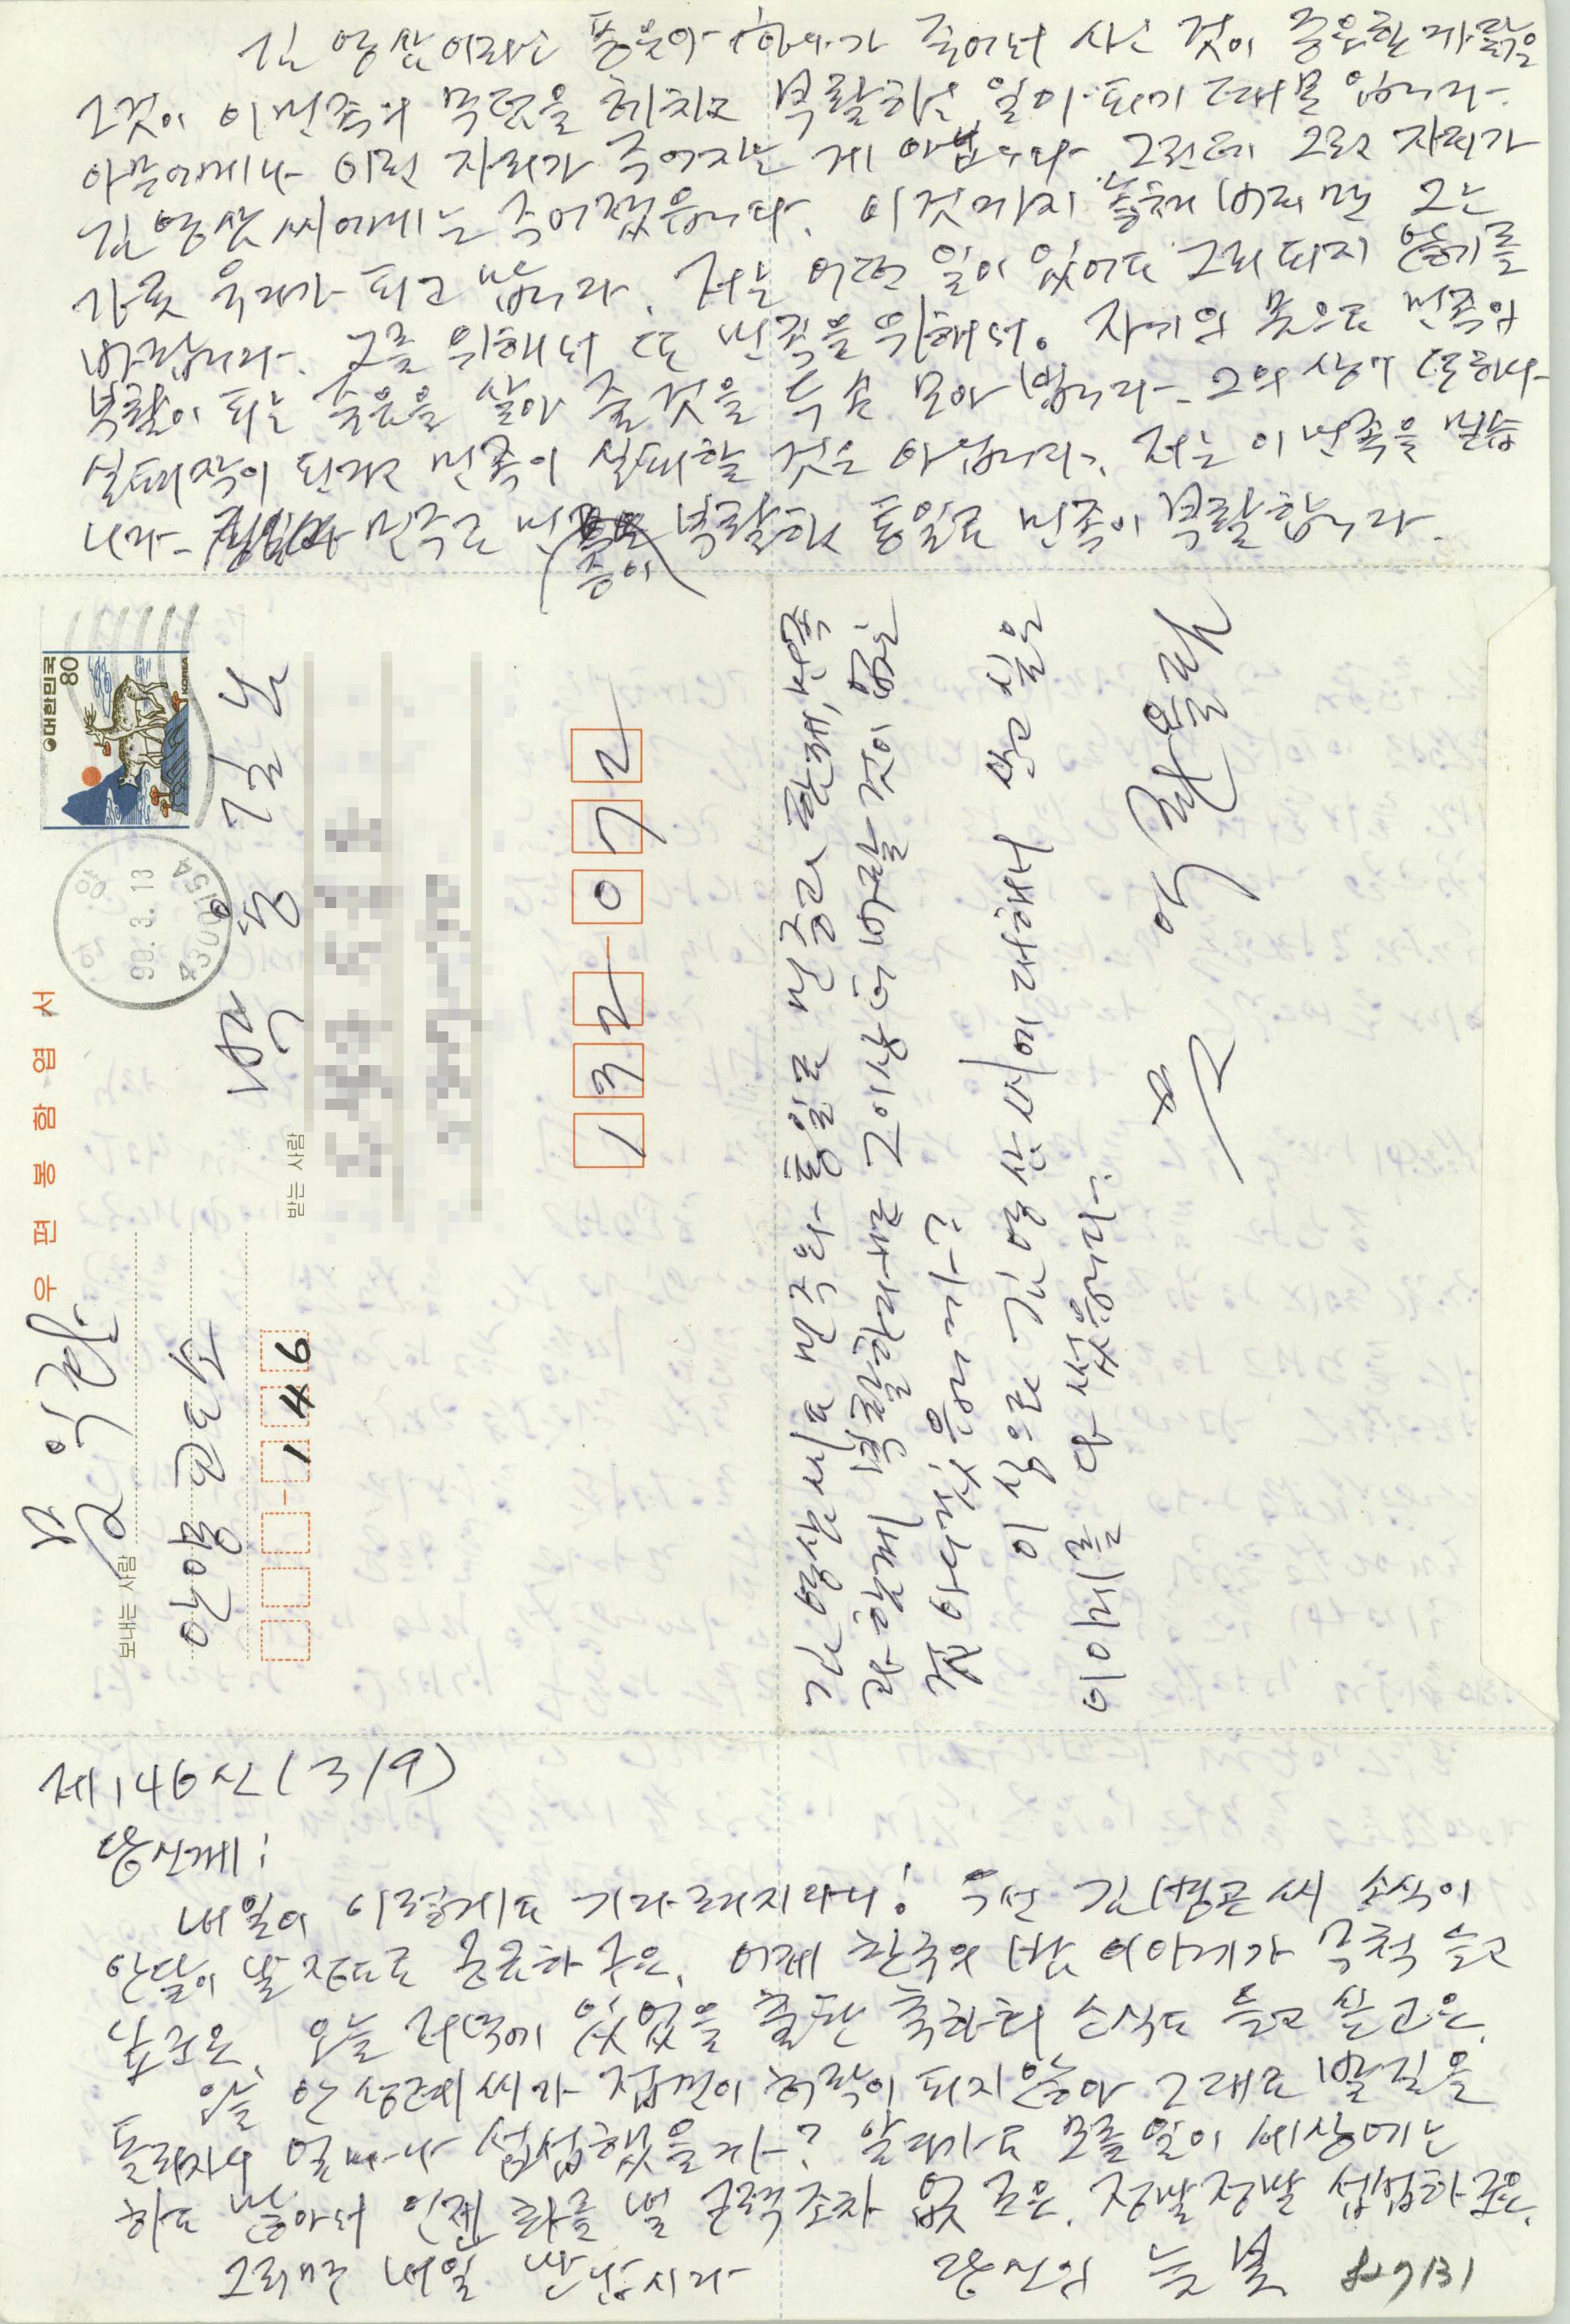 김영삼이라는 풍운아 하나가 죽어서 사는 것이 중요한 까닭은
그것이 이 민족의 무덤을 헤치고 부활하는 일이 되기 때문입니다.
아무에게나 이런 자리가 주어지는 게 아닙니다. 그런데 그런 자리가
김영삼씨에게는 주어졌읍니다. 이것까지 놓쳐 버리면 그는
가롯 유다가 되고 맙니다. 저는 어떤 일이 있어도 그리 되지 않기를
바랍니다. 그를 위해서 또 민족을 위해서. 자기의 몫으로 민족의
부활이 되는 죽음을 살아 줄 것을 두 손 모아 빕니다. 그의 생이 또 하나
실패작이 된다고 민족이 실패할 것은 아닙니다. 저는 이 민족을 믿습
니다. 민주로 민중이 부활하고 통일로 민족이 부활합니다.
대한민국
80
KOREA
90.3.13
우편봉함엽서
보내는 사람
문익환
안양교도소
146
받는 사람
박용길
132-072
김영삼씨도 민주와 통일로 민중과 함께, 민족
과 함께 부활한다면 그 이상 더 바랄 것이 없는
것 아니겠읍니까?
이 식으로 김영삼씨에 대해서 하고 싶은
이야기를 다 썼읍니다.
문익환
제146신 (3/9)
당신께!
내일이 이렇게도 기다려지다니! 우선 김병곤씨 소식이
안달이 날 정도로 궁금하군요. 어제 한국의 밤 이야기가 무척 듣고
싶군요. 오늘 저녁에 있었을 출판 축하회 소식도 듣고 싶고요.
오늘 안성례씨가 접견이 허락이 되지 않아 그대로 발길을
돌리자니 얼마나 섭섭했을까? 알다가도 모를 일이 세상에는
하도 많아서 인젠 화를 낼 근력조차 없군요. 정말정말 섭섭하군요.
그러면 내일 만납시다
당신의 늦봄